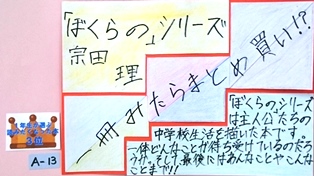 「ぼくらの」シリーズ
宗田
理
一冊みたらまとめ買い!?
「ぼくらの」シリーズ
は主人公たちの
中学校生活を描いた本です。
一体どんなことが待ち受けているのだろ
うか。そして最後にはあんなことやこんな
ことまで!!
A-13